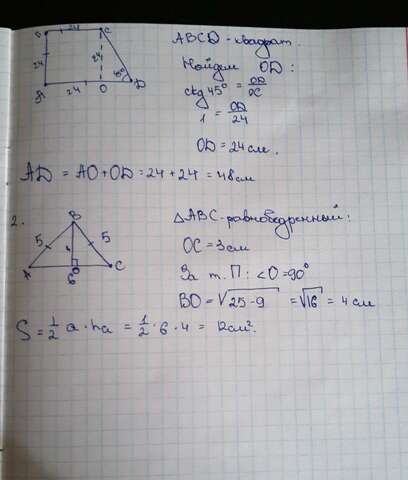 B 24 C
24 24
A 24 O 45° D
ABCD - квадрат.
Найдем OD:
ctg 45° = OD/OC
1 = OD/24
OD = 24 см.
AD = AO + OD = 24 + 24 = 48 см
2.
B
5 5
A 6 C
△ABC - равнобедренный:
OC = 3 см
За т. П: <O = 90°
BO = √25 - 9 = √16 = 4 см
S = 1/2 a · ha = 1/2 · 6 · 4 = 12 см².